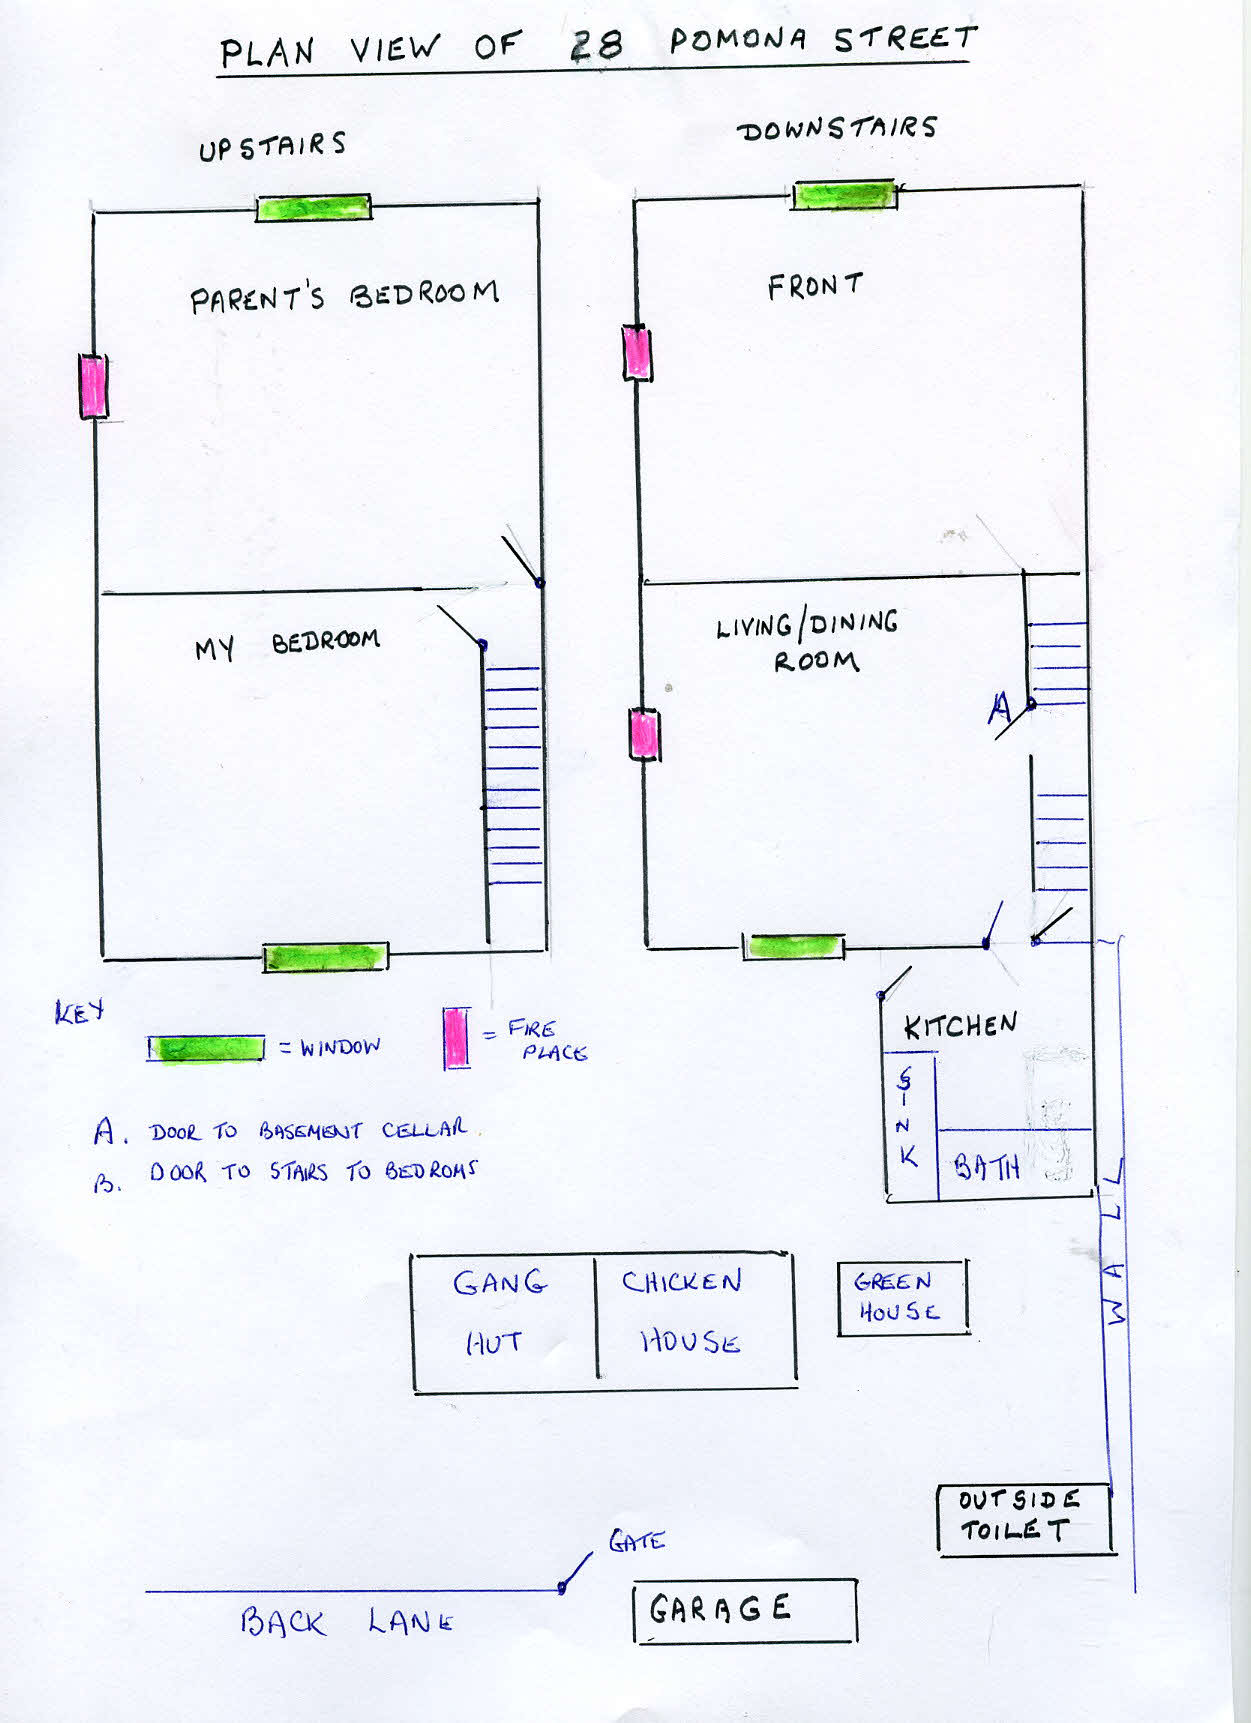 PLAN VIEW OF 28 POMONA STREET
UPSTAIRS
DOWNSTAIRS
PARENT'S BEDROOM
FRONT
MY BEDROOM
LIVING/DINING
ROOM
A
KEY
= WINDOW
= FIRE
PLACE
KITCHEN
SINK
BATH
A. DOOR TO BASEMENT CELLAR.
B. DOOR TO STAIRS TO BEDROMS
WALL
GANG
HUT
CHICKEN
HOUSE
GREEN
HOUSE
OUTSIDE
TOILET
GATE
BACK LANE
GARAGE